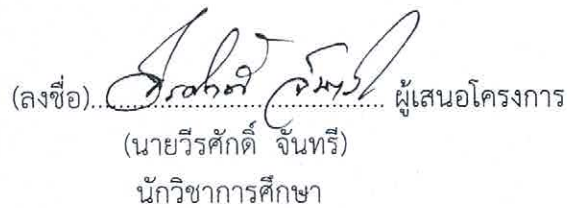 (ลงชื่อ)........................................ ผู้เสนอโครงการ
(นายวีรศักดิ์ จันทรี)
นักวิชาการศึกษา